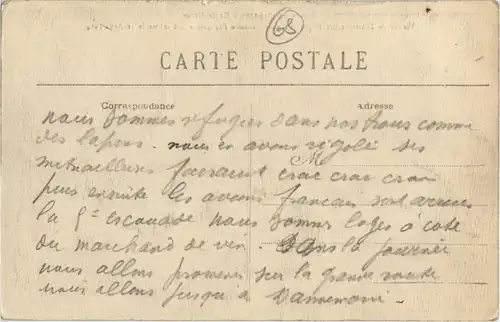 68
CARTE POSTALE
Correspondance
Adresse
nous sommes refugies dans nos trous comme
des lapins. nous en avons rigolé des
mitrailleuses faisaient crac crac crac
puis ensuite les avions francais sont arrives
la 5e escouade nous sommes loges à côté
du marchand de vin. Dans la journée
nous allons promener sur la grande route
nous allons jusqu'à Dannemarie -